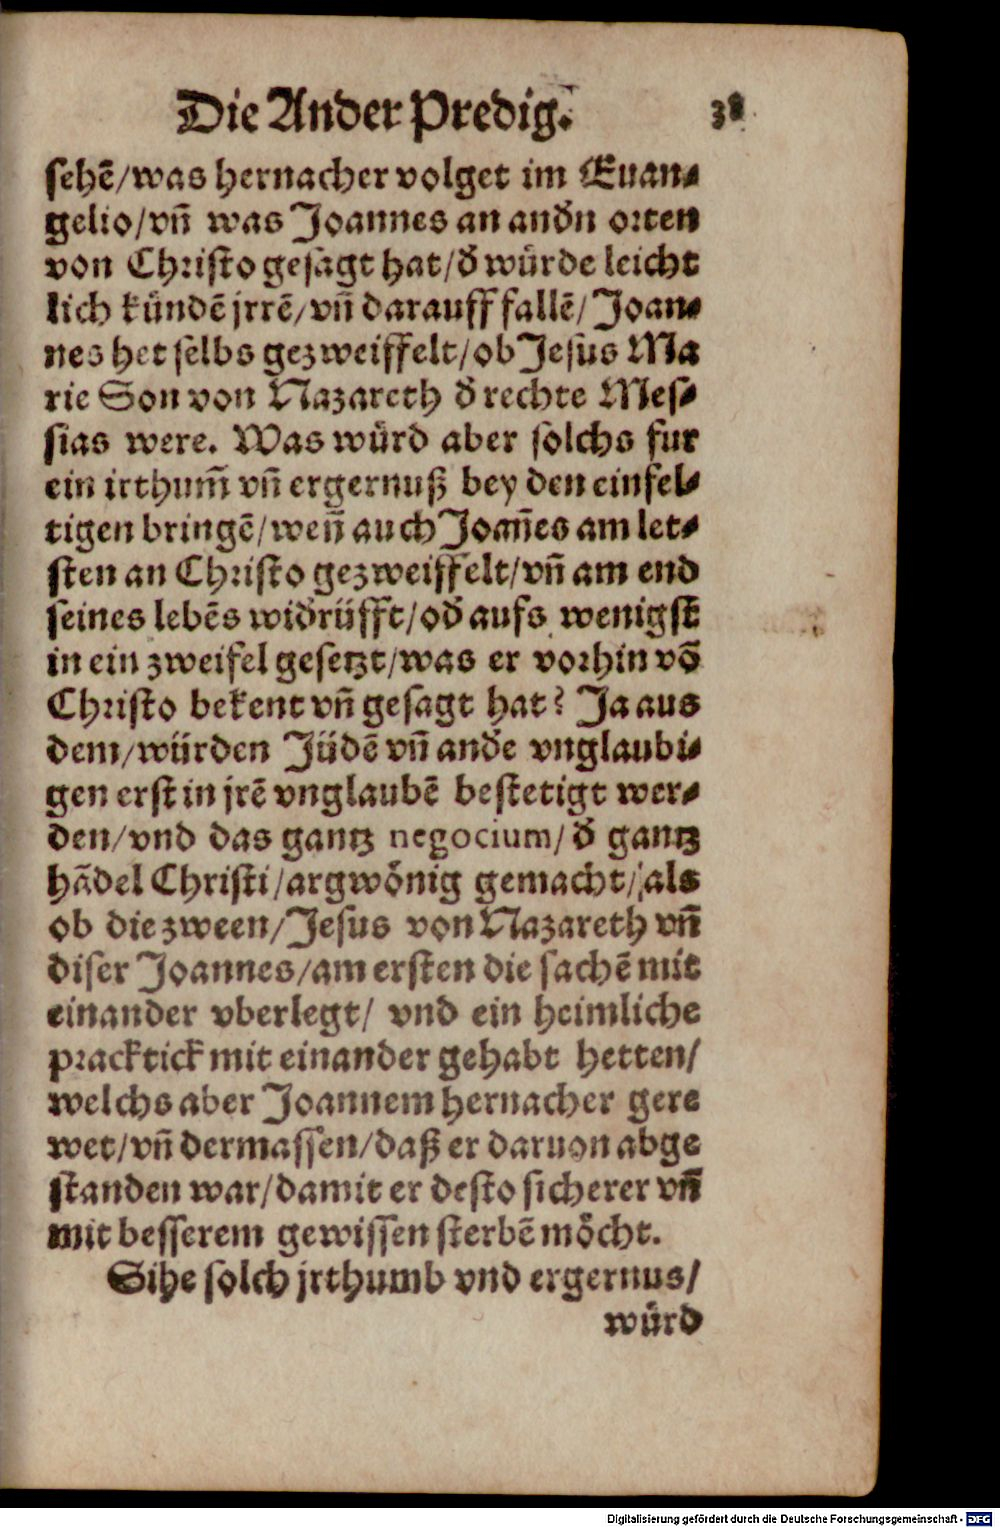 Die Ander Predig. 38
sehẽ/was hernacher volget im Euan⸗
gelio/vñ was Joannes an andn̄ orten
von Christo gesagt hat/đ wuͤrde leicht
lich kuͤndẽ jrrẽ/vñ darauff fallẽ/Joan⸗
nes het selbs gezweiffelt/ob Jesus Ma
rie Son von Nazareth đ rechte Mes⸗
sias were. Was wuͤrd aber solchs fur
ein irthum̃ vñ ergernuß bey den einfel⸗
tigen bringẽ/weñ auch Joañes am let⸗
sten an Christo gezweiffelt/vñ am end
seines lebẽs widrüfft/ođ aufs wenigst
in ein zweifel gesetzt/was er vorhin võ
Christo bekent vñ gesagt hat? Ja aus
dem/würden Jüdẽ vñ anđe vnglaubi⸗
gen erst in jrẽ vnglaubẽ bestetigt wer⸗
den/vnd das gantz negocium/đ gantz
hãdel Christi/argwoͤnig gemacht/als
ob die zween/Jesus von Nazareth vñ
diser Joannes/am ersten die sachẽ mit
einander vberlegt/ vnd ein heimliche
pracktick mit einander gehabt hetten/
welchs aber Joannem hernacher gere
wet/vñ dermassen/daß er daruon abge
standen war/damit er desto sicherer vñ
mit besserem gewissen sterbẽ moͤcht.
Sihe solch jrthumb vnd ergernus/
wuͤrd
Digitalisierung gefördert durch die Deutsche Forschungsgemeinschaft - DFG